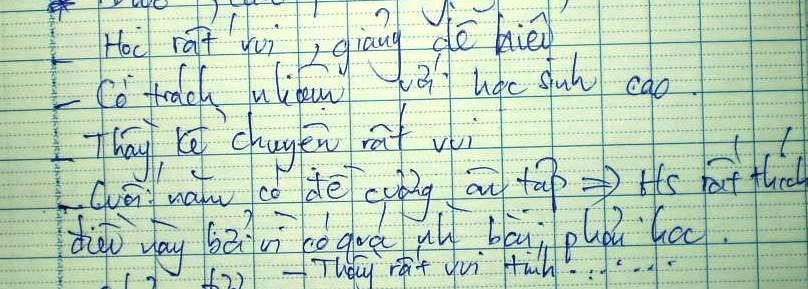 - Học rất vui, giảng dễ hiểu
- Có trách nhiệm với học sinh cao.
- Thầy kể chuyện rất vui
- Cuối năm có đề cương ôn tập => HS rất thích
điều này bởi vì có quá nh bài phải học.
- Thầy rất vui tính.......